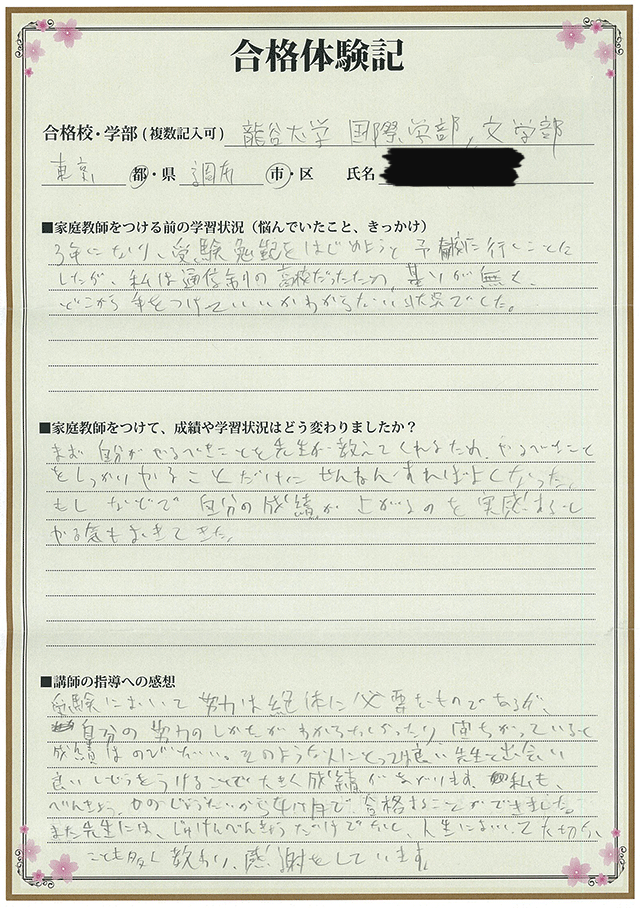 合格体験記
合格校・学部(複数記入可) 龍谷大学 国際学部, 文学部
東京 都・県 調布 市・区 氏名
■家庭教師をつける前の学習状況(悩んでいたこと、きっかけ)
3年になり、受験勉強をはじめようと予備校に行くことに
したが、私は通信制の高校だったため、基そが無く、
どこから手をつけていいかわからない状态でした。
■家庭教師をつけて、成績や学習状況はどう変わりましたか?
まず自分がやるべきことを先生が教えてくれるため、やるべきこと
をしっかりやることだけにせんねんすればよくなった。
もしなどで自分の成績が上がるのを実感するし
やる気もおきてきた。
■講師の指導への感想
受験において努力は絶体に必要なものであるが、
自分の努力のしかたがわからなかったり、間ちがっていると
成績はのびない。そのような人にとって良い先生と出会い
良いしどうをうけることで大きく成績が上がります。私も、
べんきょう のじょうたいから4ヶ月で、合格することができました。
また先生には、じゅけんべんきょうだけでなく、人生において大切な
ことも多く教わり、感謝をしています。